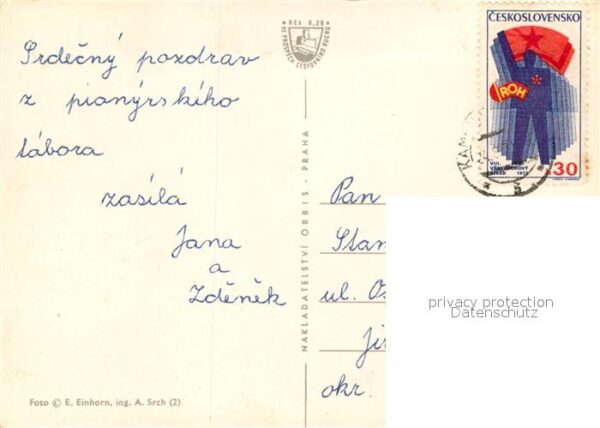 Srdečný pozdrav
z pionýrského
tábora
zasílá
Jana
a
Zděněk
Foto © E. Einhorn, ing. A. Srch (2)
Kčs 0,20
VE PROSPĚCH CESTOVNÍHO RUCHU
NAKLADATELSTVÍ ORBIS - PRAHA
ČESKOSLOVENSKO
ROH
VIII.
VŠEODBOROVÝ
SJEZD 1972
30
KAM
5
Pan
Stan
ul.
okr.
privacy protection
Datenschutz